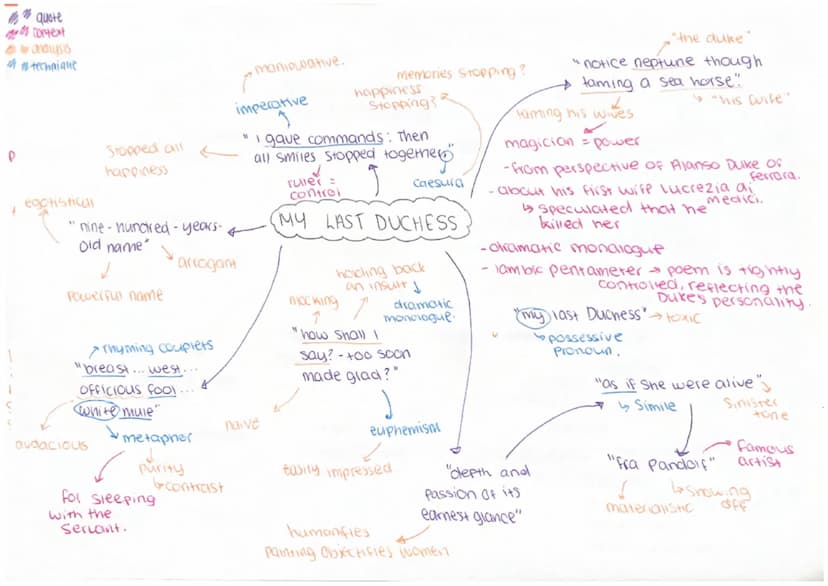 " " quote
" " context
" " analysis
" " technique
manipulative.
imperative
"I gave commands: Then
all smiles stopped together"
Stopped all
happiness
ruler =
control
caesura
memories stopping?
happiness
stopping?
"the duke"
"notice neptune though
taming a sea horse"
"his wife"
taming his wives
magician = power
- from perspective of Alanso Duke of
ferrara.
- about his first wife Lucrezia di
medici.
↳ speculated that he
killed her
- dramatic monologue
- iambic pentameter → poem is tightly
controlled, reflecting the
Duke's personality.
MY LAST DUCHESS
egotistical
"nine-hundred-years-
old name"
arrogant
powerful name
rhyming couplets
"breast... west...
officious fool...
white mule"
audacious
metapher
purity
↳ contrast
for sleeping
with the
servant.
holding back
an insult
mocking
dramatic
monologue.
"how shall I
say? - too soon
made glad?"
naive
euphemism
easily impressed
"my last Duchess" → toxic
↳ possessive
pronoun.
"as if she were alive"
↳ Simile
sinister
tone
"fra pandolf"
famous
artist
↳ Showing
off
materialistic
"depth and
passion of its
earnest glance"
humanifies
painting objectifies women